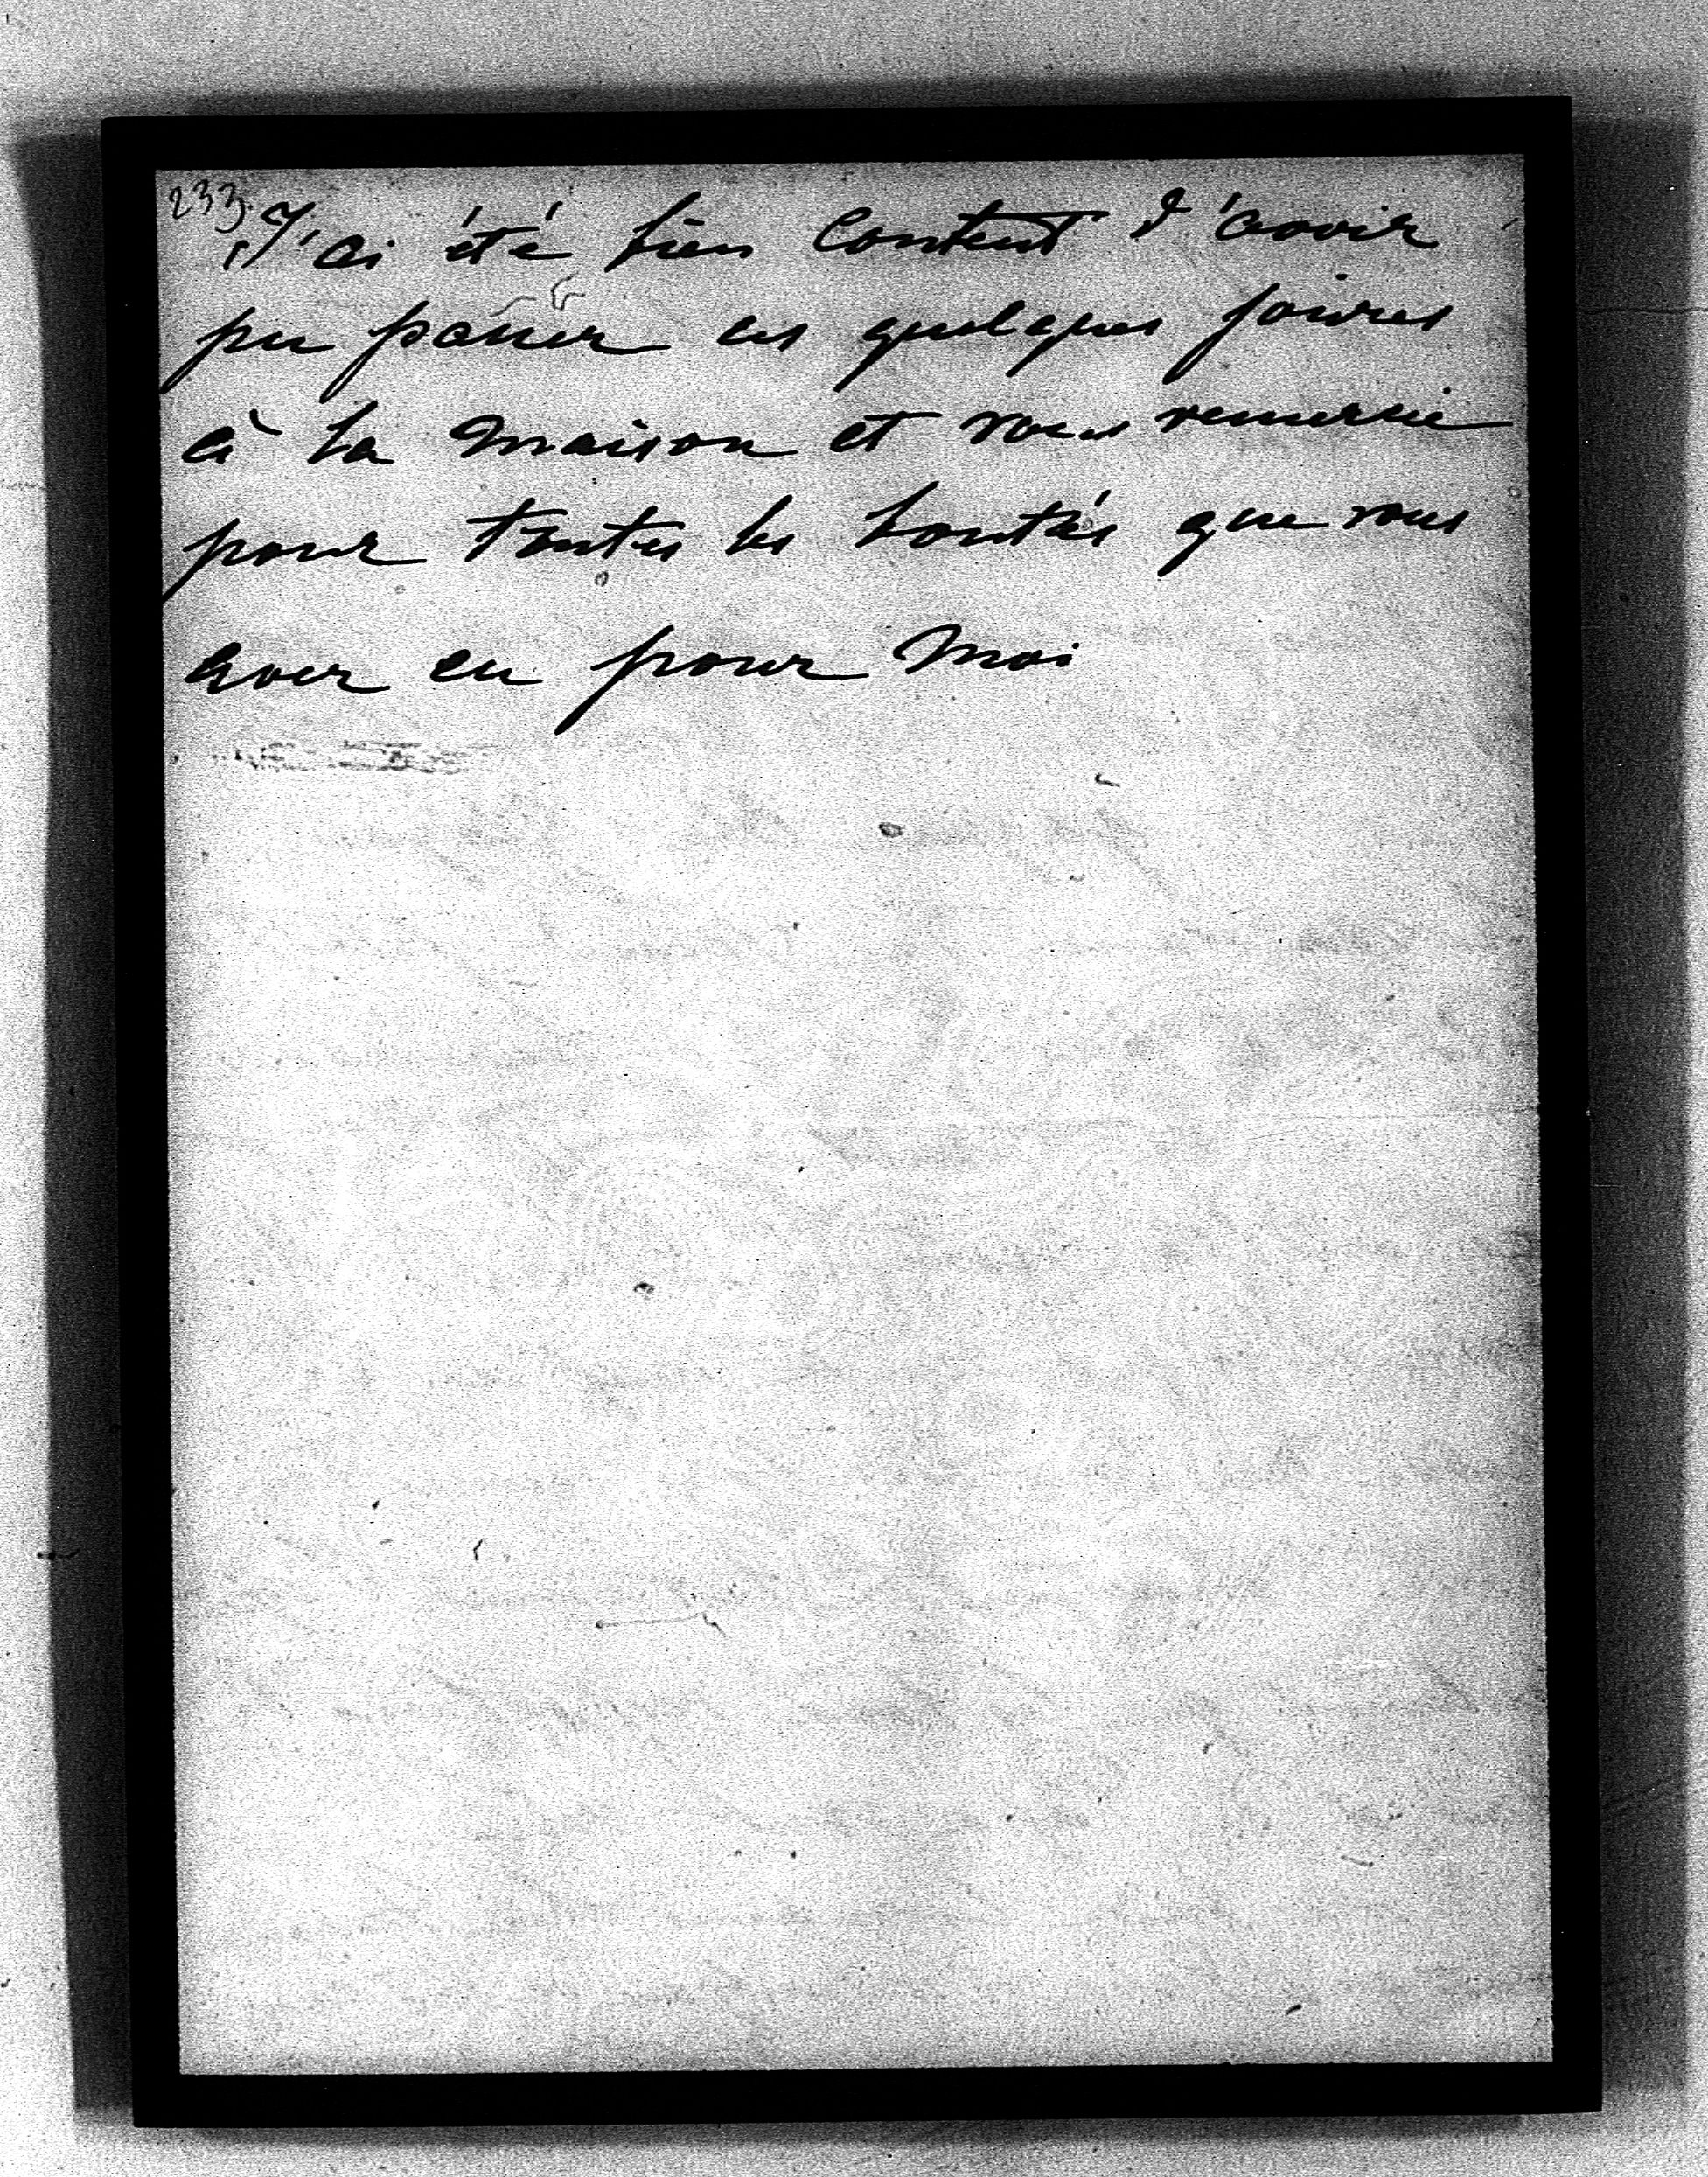 233.
J'ai été bien content d'avoir
pu passer ces quelques jours
à la maison et vous remercie
pour toutes les bontés que vous
avez eu pour moi